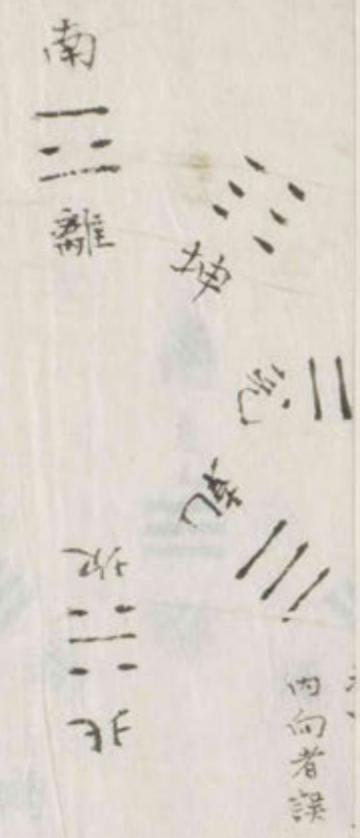 南
離
坤
兌
乾
坎
北
内向者誤